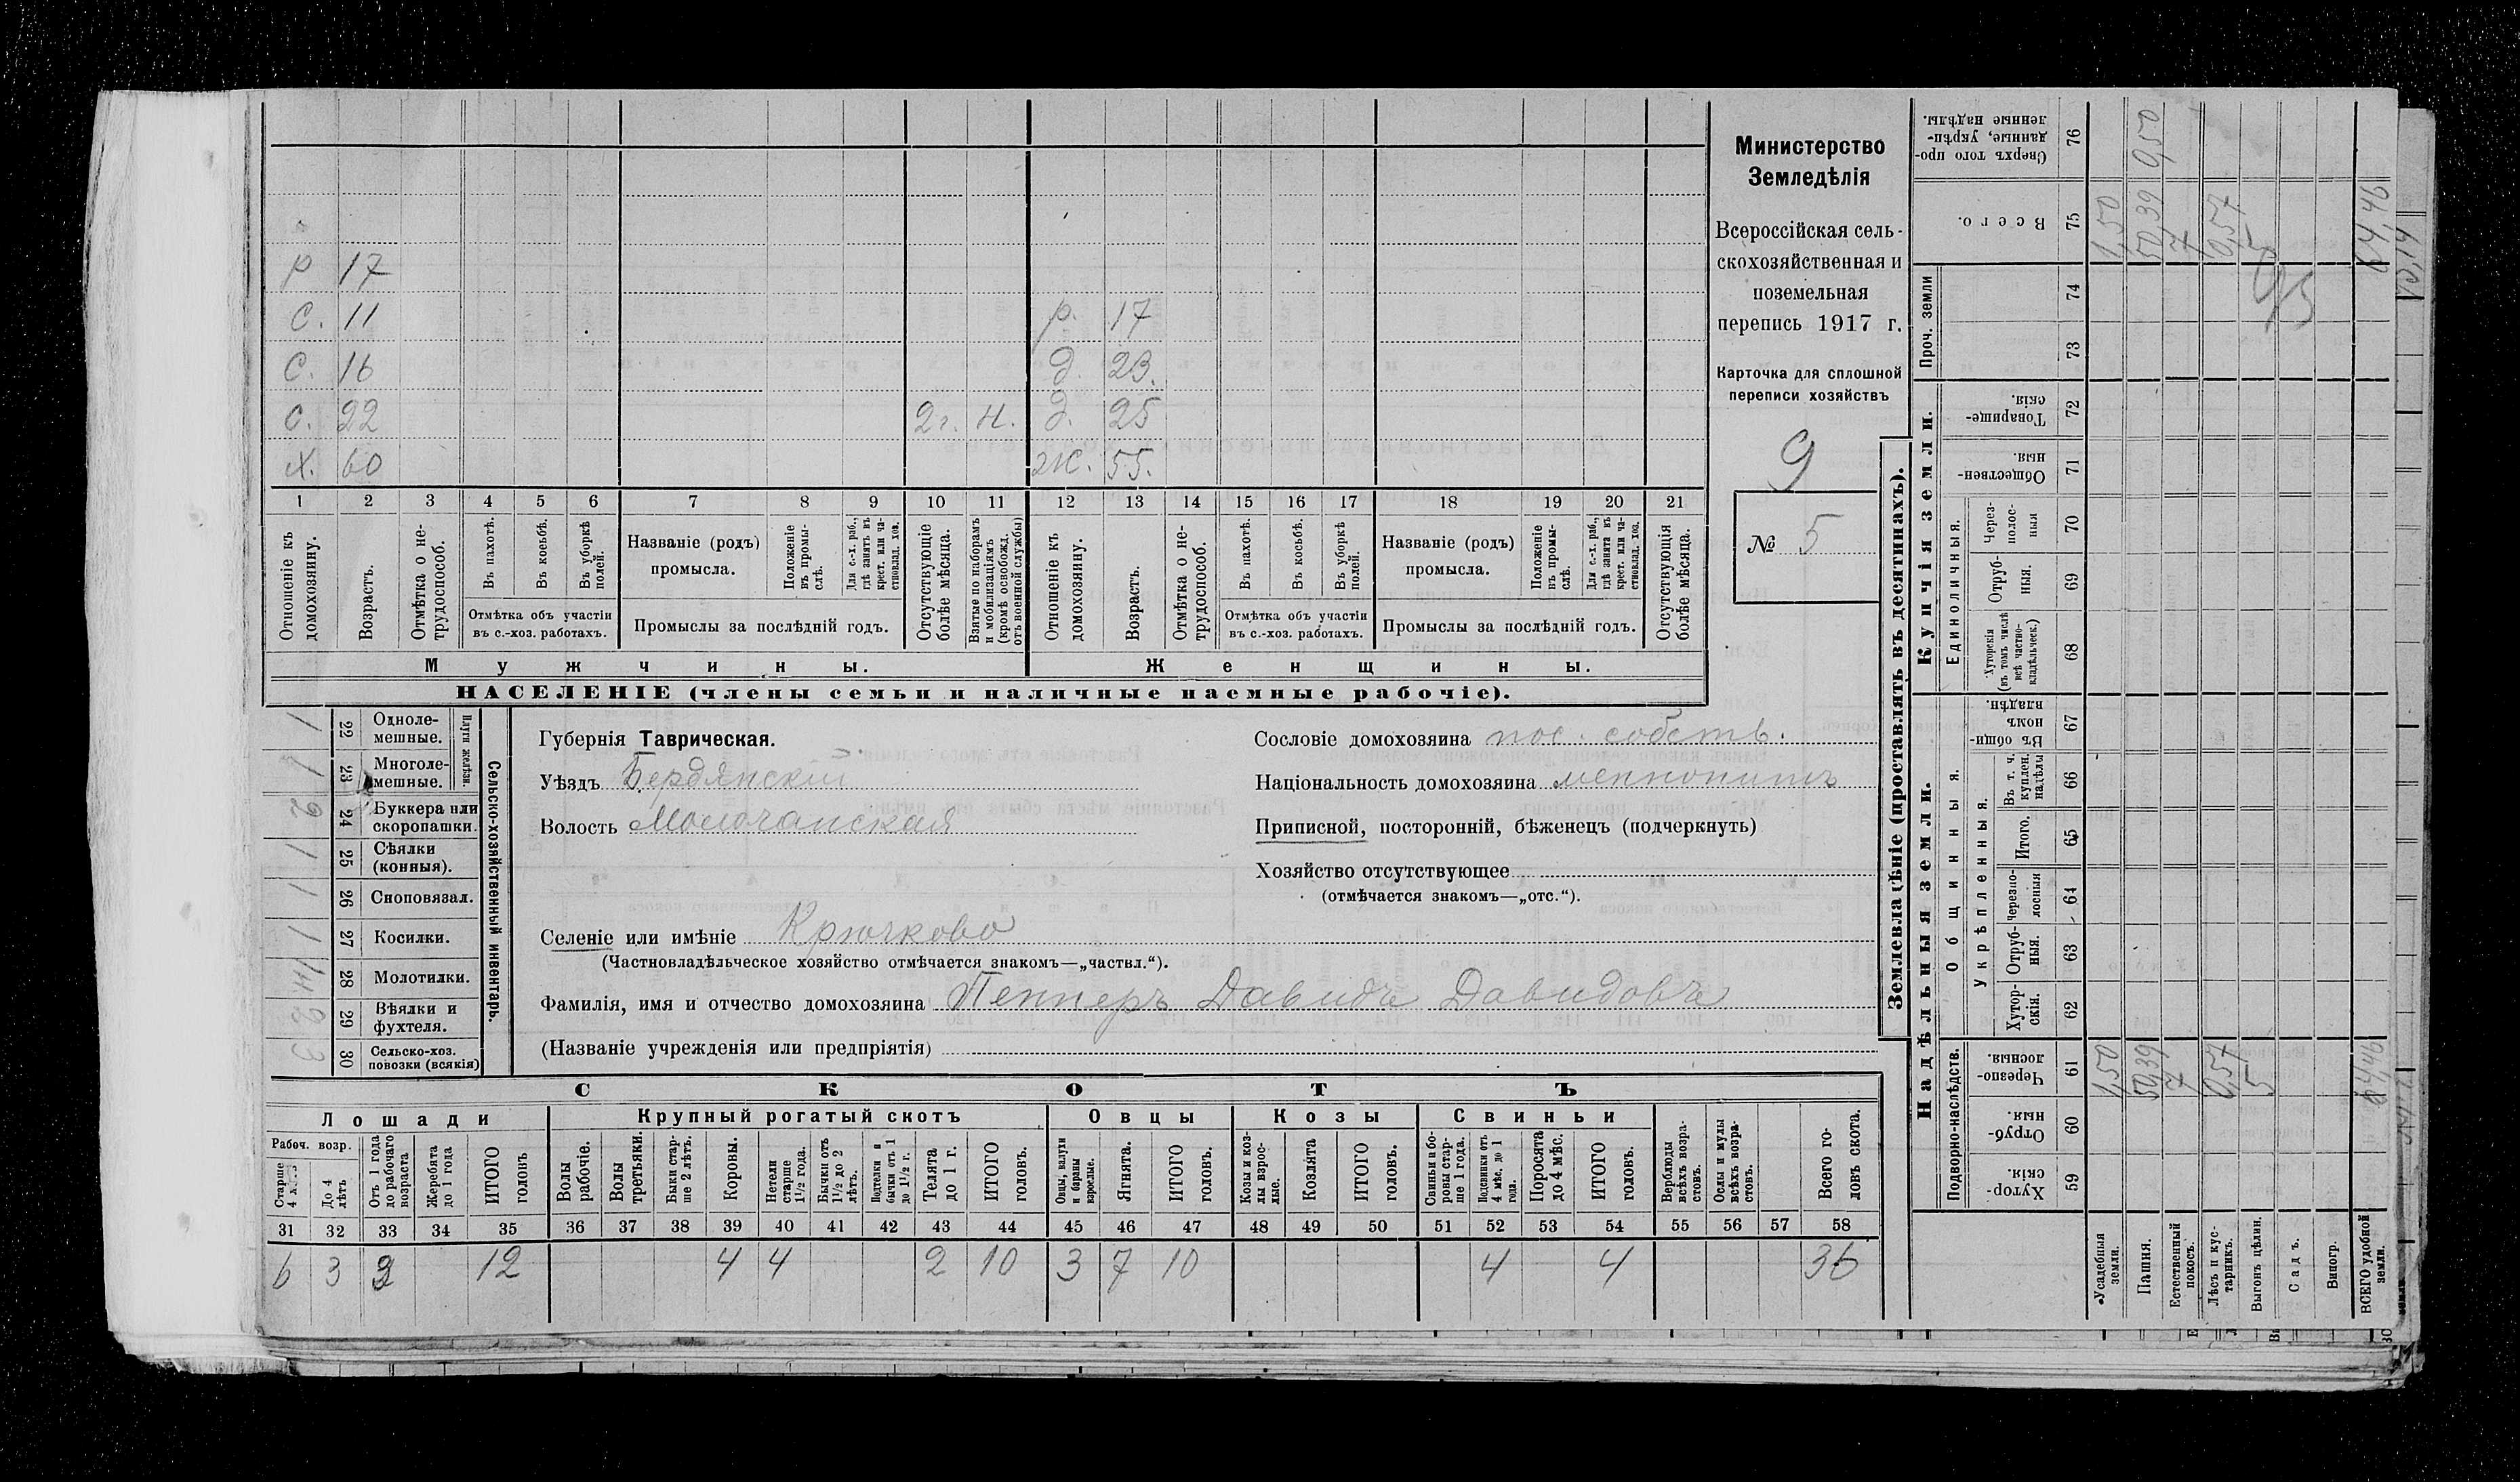 р 17
с. 11 р. 17
с. 16 д. 23.
с. 22 2 г. н. д. 25
х. 60 ж. 55.
1 2 3 4 5 6 7 8 9 10 11 12 13 14 15 16 17 18 19 20 21
Отношеніе къ домохозяину.
Возрастъ.
Отмѣтка о не-трудоспособ.
Въ пахотѣ.
Въ косьбѣ.
Въ уборкѣ полей.
Отмѣтка объ участіи въ с.-хоз. работахъ.
Названіе (родъ) промысла.
Положеніе въ промы-слѣ.
Для с.-х. раб., гдѣ занятъ въ крест. или ча-стновлад. хоз.
Промыслы за послѣдній годъ.
Отсутствующіе болѣе мѣсяца.
Взятые по наборамъ и мобилизаціямъ (кромѣ освобожд. отъ военной службы)
Отношеніе къ домохозяину.
Возрастъ.
Отмѣтка о не-трудоспособ.
Въ пахотѣ.
Въ косьбѣ.
Въ уборкѣ полей.
Отмѣтка объ участіи въ с.-хоз. работахъ.
Названіе (родъ) промысла.
Положеніе въ промы-слѣ.
Для с.-х. раб., гдѣ занята въ крест. или ча-стновлад. хоз.
Промыслы за послѣдній годъ.
Отсутствующія болѣе мѣсяца.
Мужчины. Женщины.
НАСЕЛЕНІЕ (члены семьи и наличные наемные рабочіе).
Министерство
Земледѣлія
Всероссійская сель-
скохозяйственная и
поземельная
перепись 1917 г.
Карточка для сплошной
переписи хозяйствъ
9
№ 5
1 22 Одноле-мешные.
1 23 Многоле-мешные.
Плуги желѣзн.
2 24 Буккера или скоропашки.
1 25 Сѣялки (конныя).
1 26 Сноповязал.
1 27 Косилки.
28 Молотилки.
2 29 Вѣялки и фухтеля.
3 30 Сельско-хоз. повозки (всякія)
Сельско-хозяйственный инвентарь.
Губернія Таврическая.
Уѣздъ Бердянскій
Волость Молочанская
Сословіе домохозяина пос. собств.
Національность домохозяина меннонитъ
Приписной, посторонній, бѣженецъ (подчеркнуть)
Хозяйство отсутствующее
(отмѣчается знакомъ—„отс.“).
Селеніе или имѣніе Крючково
(Частновладѣльческое хозяйство отмѣчается знакомъ—„частвл.“).
Фамилія, имя и отчество домохозяина Пеннеръ Давидъ Давидовъ
(Названіе учрежденія или предпріятія)
СКОТЪ
Лошади Крупный рогатый скотъ Овцы Козы Свиньи
Рабоч. возр.
Старше 4 лѣтъ
До 4 лѣтъ
Отъ 1 года до рабочаго возраста
Жеребята до 1 года
ИТОГО головъ
Волы рабочіе.
Волы третьяки.
Быки стар-ше 2 лѣтъ.
Коровы.
Нетели старше 1½ года.
Бычки отъ 1½ до 2 лѣтъ.
Подтелки и бычки отъ 1 до 1½ г.
Телята до 1 г.
ИТОГО головъ.
Овцы, валухи и бараны взрослые.
Ягнята.
ИТОГО головъ.
Козы и коз-лы взрос-лые.
Козлята
ИТОГО головъ.
Свиньи и бо-ровы стар-ше 1 года.
Подсвинки отъ 4 мѣс. до 1 года.
Поросята до 4 мѣс.
ИТОГО головъ.
Верблюды всѣхъ возра-стовъ.
Ослы и мулы всѣхъ возра-стовъ.
Всего го-ловъ скота.
31 32 33 34 35 36 37 38 39 40 41 42 43 44 45 46 47 48 49 50 51 52 53 54 55 56 57 58
6 3 3 12 4 4 2 10 3 7 10 4 4 36
Землевладѣніе (проставлять въ десятинахъ).
Сверхъ того про-данные, укрѣп-ленные надѣлы. 76 9,50
Всего. 75 1,50 50,39 7 0,57 5 64,46
Проч. земли 74 73
Купчія земли.
Товарище-скія. 72
Обществен-ныя. 71
Единоличныя.
Через-полос-ныя 70
Отруб-ныя. 69
Хуторскія (въ томъ числѣ всѣ частно-владѣльческ.) 68
Надѣльныя земли.
Общинныя.
Въ общи-номъ владѣн. 67
Укрѣпленныя.
Въ т. ч. куплен. надѣлы 66
Итого. 65
Черезпо-лосныя 64
Отруб-ныя. 63
Хутор-скія. 62
Подворно-наслѣдств.
Черезпо-лосныя. 61 1,50 50,39 7 0,57 5 64,46
Отруб-ныя. 60
Хутор-скія. 59
Усадебныя земли.
Пашня.
Естественный покосъ.
Лѣсъ и кус-тарникъ.
Выгонъ цѣлин.
Садъ.
Виногр.
ВСЕГО удобной земли.